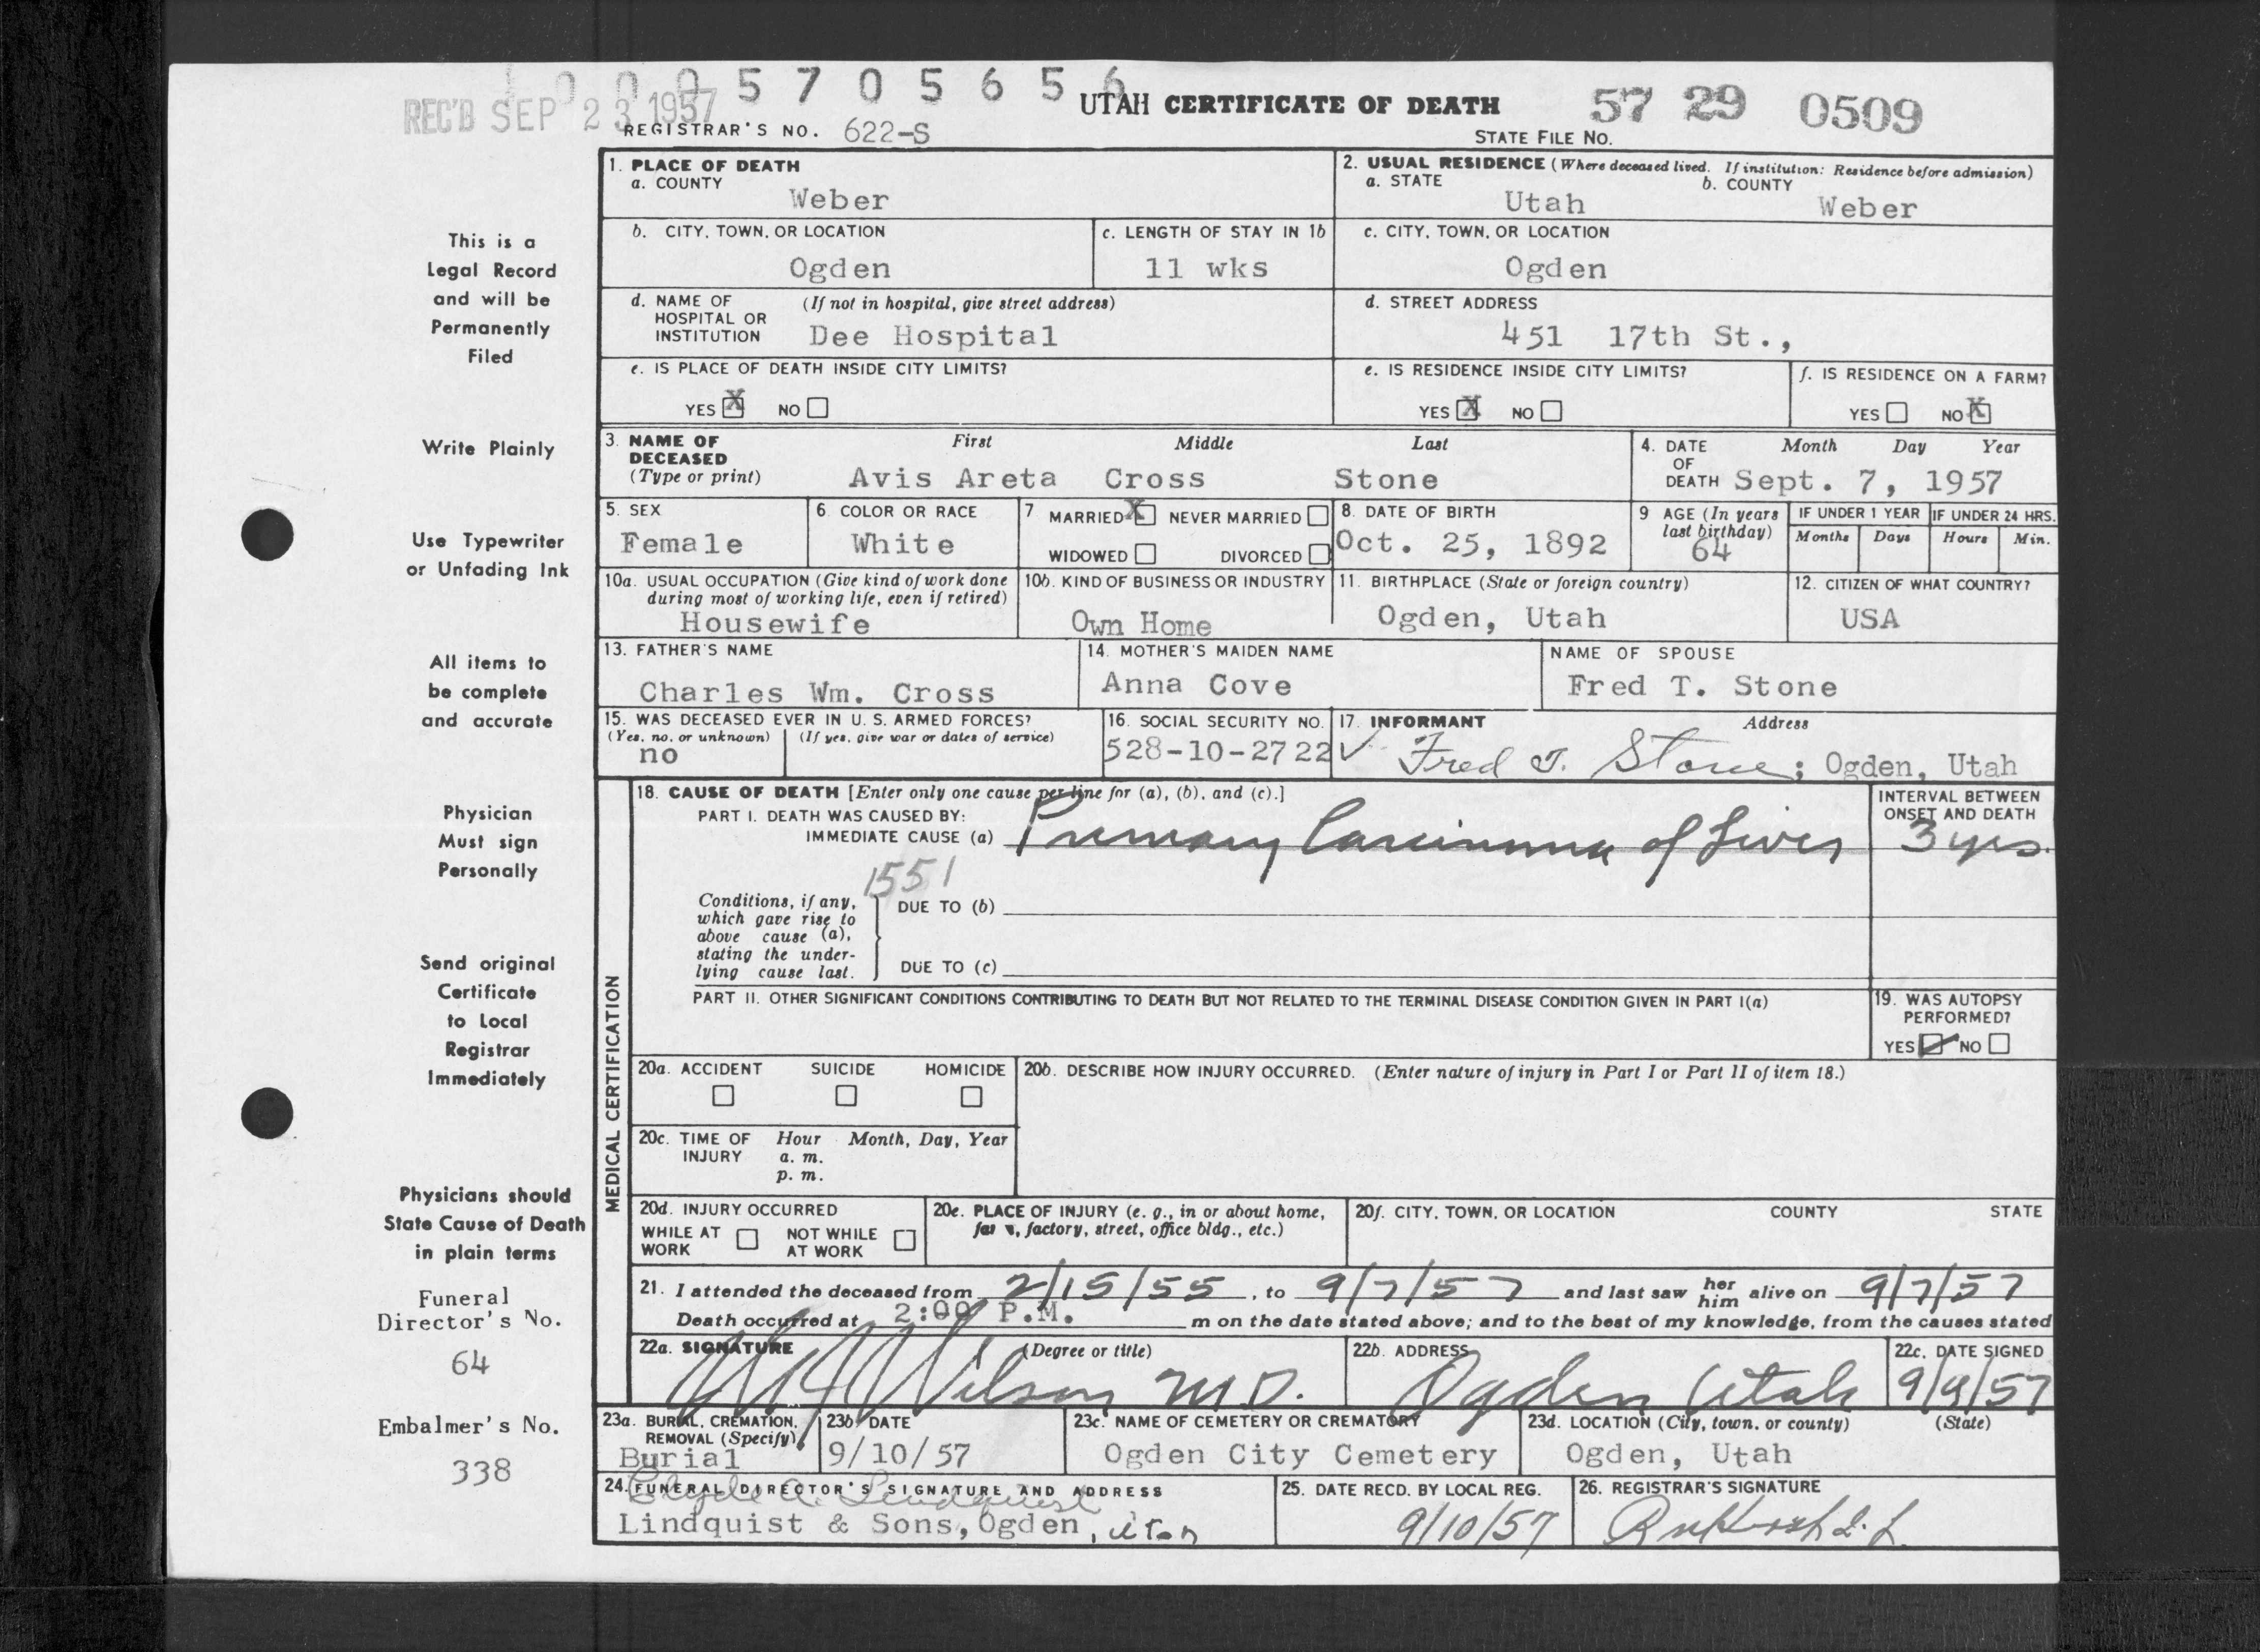 1 0 0 0 5 7 0 5 6 5 6
REC'D SEP 23 1957
UTAH CERTIFICATE OF DEATH
57 29 0509
REGISTRAR'S NO. 622-S
STATE FILE NO.
This is a
Legal Record
and will be
Permanently
Filed
Write Plainly
Use Typewriter
or Unfading Ink
All items to
be complete
and accurate
Physician
Must sign
Personally
Send original
Certificate
to Local
Registrar
Immediately
Physicians should
State Cause of Death
in plain terms
Funeral
Director's No.
64
Embalmer's No.
338
1. PLACE OF DEATH
a. COUNTY
Weber
2. USUAL RESIDENCE (Where deceased lived. If institution: Residence before admission)
a. STATE
b. COUNTY
Utah
Weber
b. CITY, TOWN, OR LOCATION
Ogden
c. LENGTH OF STAY IN 1b
11 wks
c. CITY, TOWN, OR LOCATION
Ogden
d. NAME OF (If not in hospital, give street address)
HOSPITAL OR
INSTITUTION Dee Hospital
d. STREET ADDRESS
451 17th St.,
e. IS PLACE OF DEATH INSIDE CITY LIMITS?
YES X NO
e. IS RESIDENCE INSIDE CITY LIMITS?
YES X NO
f. IS RESIDENCE ON A FARM?
YES NO X
3. NAME OF
DECEASED
(Type or print)
First Middle Last
Avis Areta Cross Stone
4. DATE
OF
DEATH
Month Day Year
Sept. 7, 1957
5. SEX
Female
6. COLOR OR RACE
White
7 MARRIED X NEVER MARRIED
WIDOWED DIVORCED
8. DATE OF BIRTH
Oct. 25, 1892
9 AGE (In years
last birthday)
64
IF UNDER 1 YEAR
Months Days
IF UNDER 24 HRS.
Hours Min.
10a. USUAL OCCUPATION (Give kind of work done
during most of working life, even if retired)
Housewife
10b. KIND OF BUSINESS OR INDUSTRY
Own Home
11. BIRTHPLACE (State or foreign country)
Ogden, Utah
12. CITIZEN OF WHAT COUNTRY?
USA
13. FATHER'S NAME
Charles Wm. Cross
14. MOTHER'S MAIDEN NAME
Anna Cove
NAME OF SPOUSE
Fred T. Stone
15. WAS DECEASED EVER IN U. S. ARMED FORCES?
(Yes, no, or unknown) (If yes, give war or dates of service)
no
16. SOCIAL SECURITY NO.
528-10-2722
17. INFORMANT Address
Fred T. Stone; Ogden, Utah
MEDICAL CERTIFICATION
18. CAUSE OF DEATH [Enter only one cause per line for (a), (b), and (c).]
PART I. DEATH WAS CAUSED BY:
IMMEDIATE CAUSE (a) Primary Carcinoma of Liver
INTERVAL BETWEEN
ONSET AND DEATH
3 yrs.
1551
Conditions, if any,
which gave rise to
above cause (a),
stating the under-
lying cause last.
DUE TO (b)
DUE TO (c)
PART II. OTHER SIGNIFICANT CONDITIONS CONTRIBUTING TO DEATH BUT NOT RELATED TO THE TERMINAL DISEASE CONDITION GIVEN IN PART I(a)
19. WAS AUTOPSY
PERFORMED?
YES NO
20a. ACCIDENT SUICIDE HOMICIDE
20b. DESCRIBE HOW INJURY OCCURRED. (Enter nature of injury in Part I or Part II of item 18.)
20c. TIME OF Hour Month, Day, Year
INJURY a. m.
p. m.
20d. INJURY OCCURRED
WHILE AT NOT WHILE
WORK AT WORK
20e. PLACE OF INJURY (e. g., in or about home,
factory, street, office bldg., etc.)
20f. CITY, TOWN, OR LOCATION COUNTY STATE
21. I attended the deceased from 2/15/55, to 9/7/57 and last saw her him alive on 9/7/57
Death occurred at 2:00 P.M. m on the date stated above; and to the best of my knowledge, from the causes stated
22a. SIGNATURE (Degree or title)
Wilson M D.
22b. ADDRESS
Ogden Utah
22c. DATE SIGNED
9/9/57
23a. BURIAL, CREMATION,
REMOVAL (Specify)
Burial
23b. DATE
9/10/57
23c. NAME OF CEMETERY OR CREMATORY
Ogden City Cemetery
23d. LOCATION (City, town, or county) (State)
Ogden, Utah
24. FUNERAL DIRECTOR'S SIGNATURE AND ADDRESS
Clyde A. Lindquist
Lindquist & Sons, Ogden, Utah
25. DATE RECD. BY LOCAL REG.
9/10/57
26. REGISTRAR'S SIGNATURE